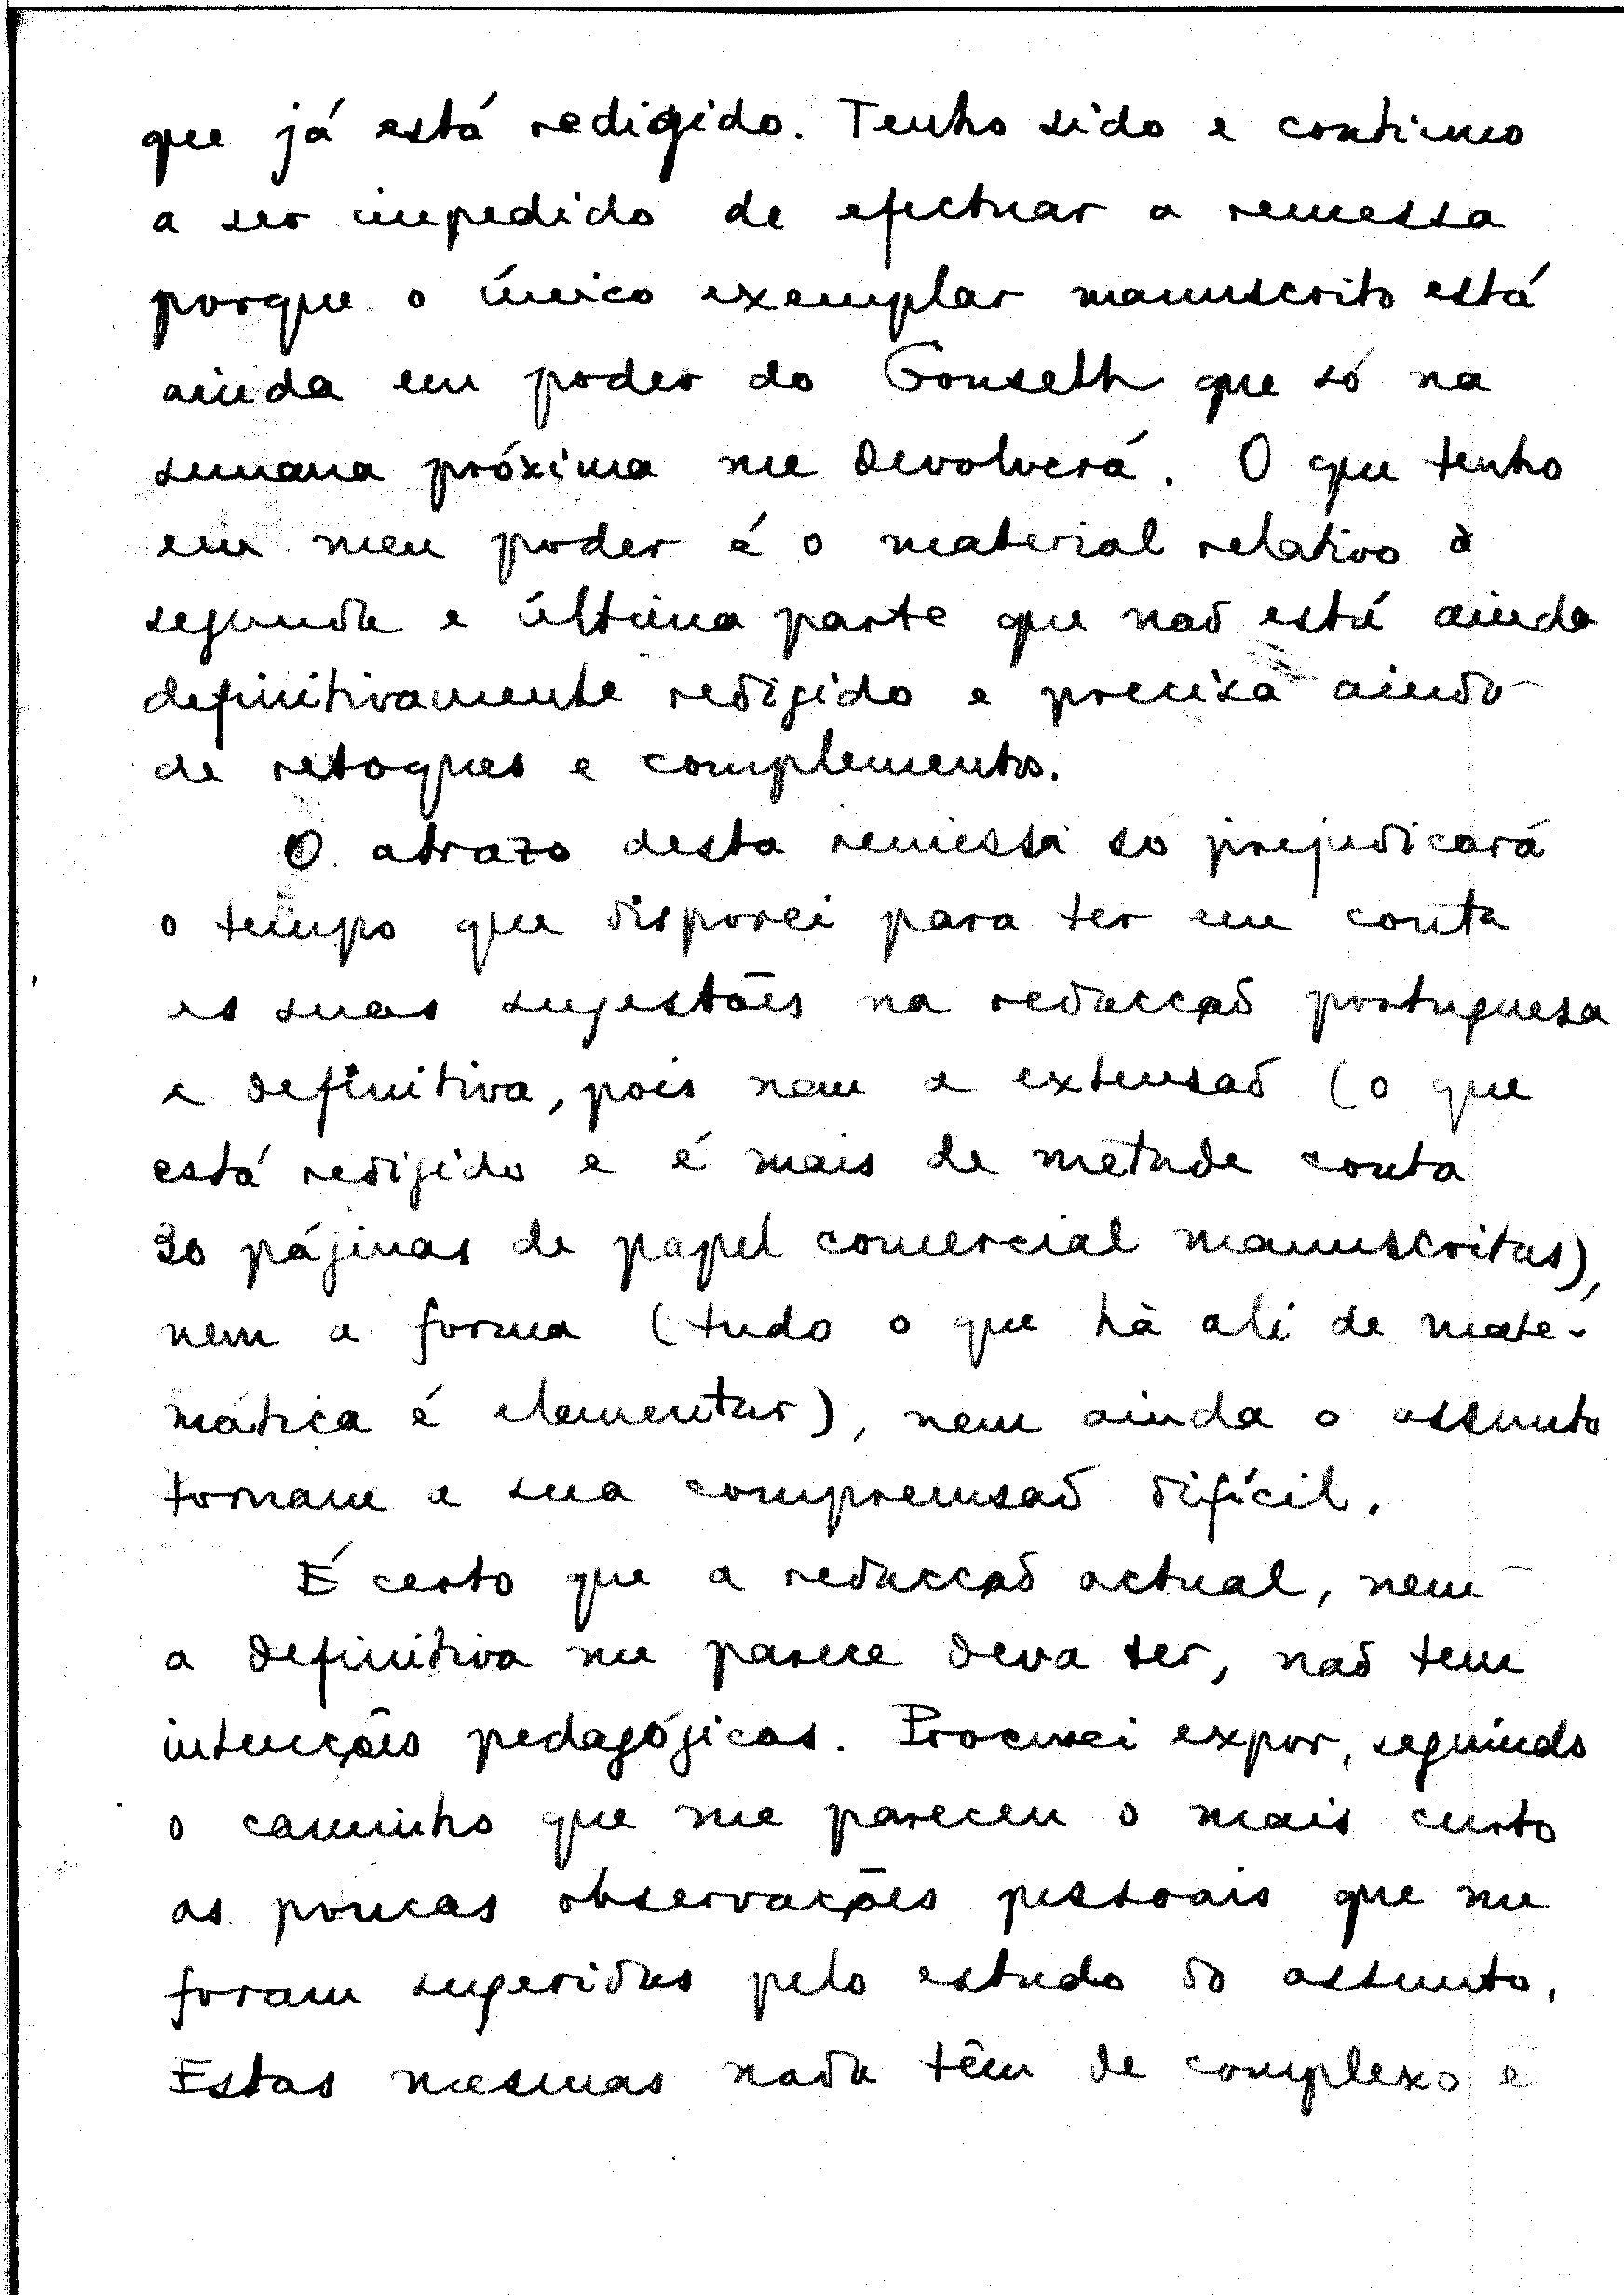 que já está redigido. Tenho sido e continuo
a ser impedido de efectuar a remessa
porque o único exemplar manuscrito está
ainda em poder do Gonseth que só na
semana próxima me devolverá. O que tenho
em meu poder é o material relativo à
segunda e última parte que naõ está ainda
definitivamente redigido e precisa ainda
de retoques e complementos.
O atrazo desta remessa so prejudicará
o tempo que disporei para ter em conta
as suas sugestões na redacçaõ portuguesa
e definitiva, pois nem a extensaõ (o que
está redigido e é mais de metade conta
30 páginas de papel comercial manuscritas),
nem a forma (tudo o que há ali de mate-
mática é elementar), nem ainda o assunto
tornam a sua compreensaõ difícil.
É certo que a redacçaõ actual, nem
a definitiva me parece deva ser, naõ tem
intenções pedagógicas. Procurei expor, seguindo
o caminho que me pareceu o mais curto
as poucas observações pessoais que me
foram sugeridas pelo estudo do assunto.
Estas mesmas nada têm de complexo e